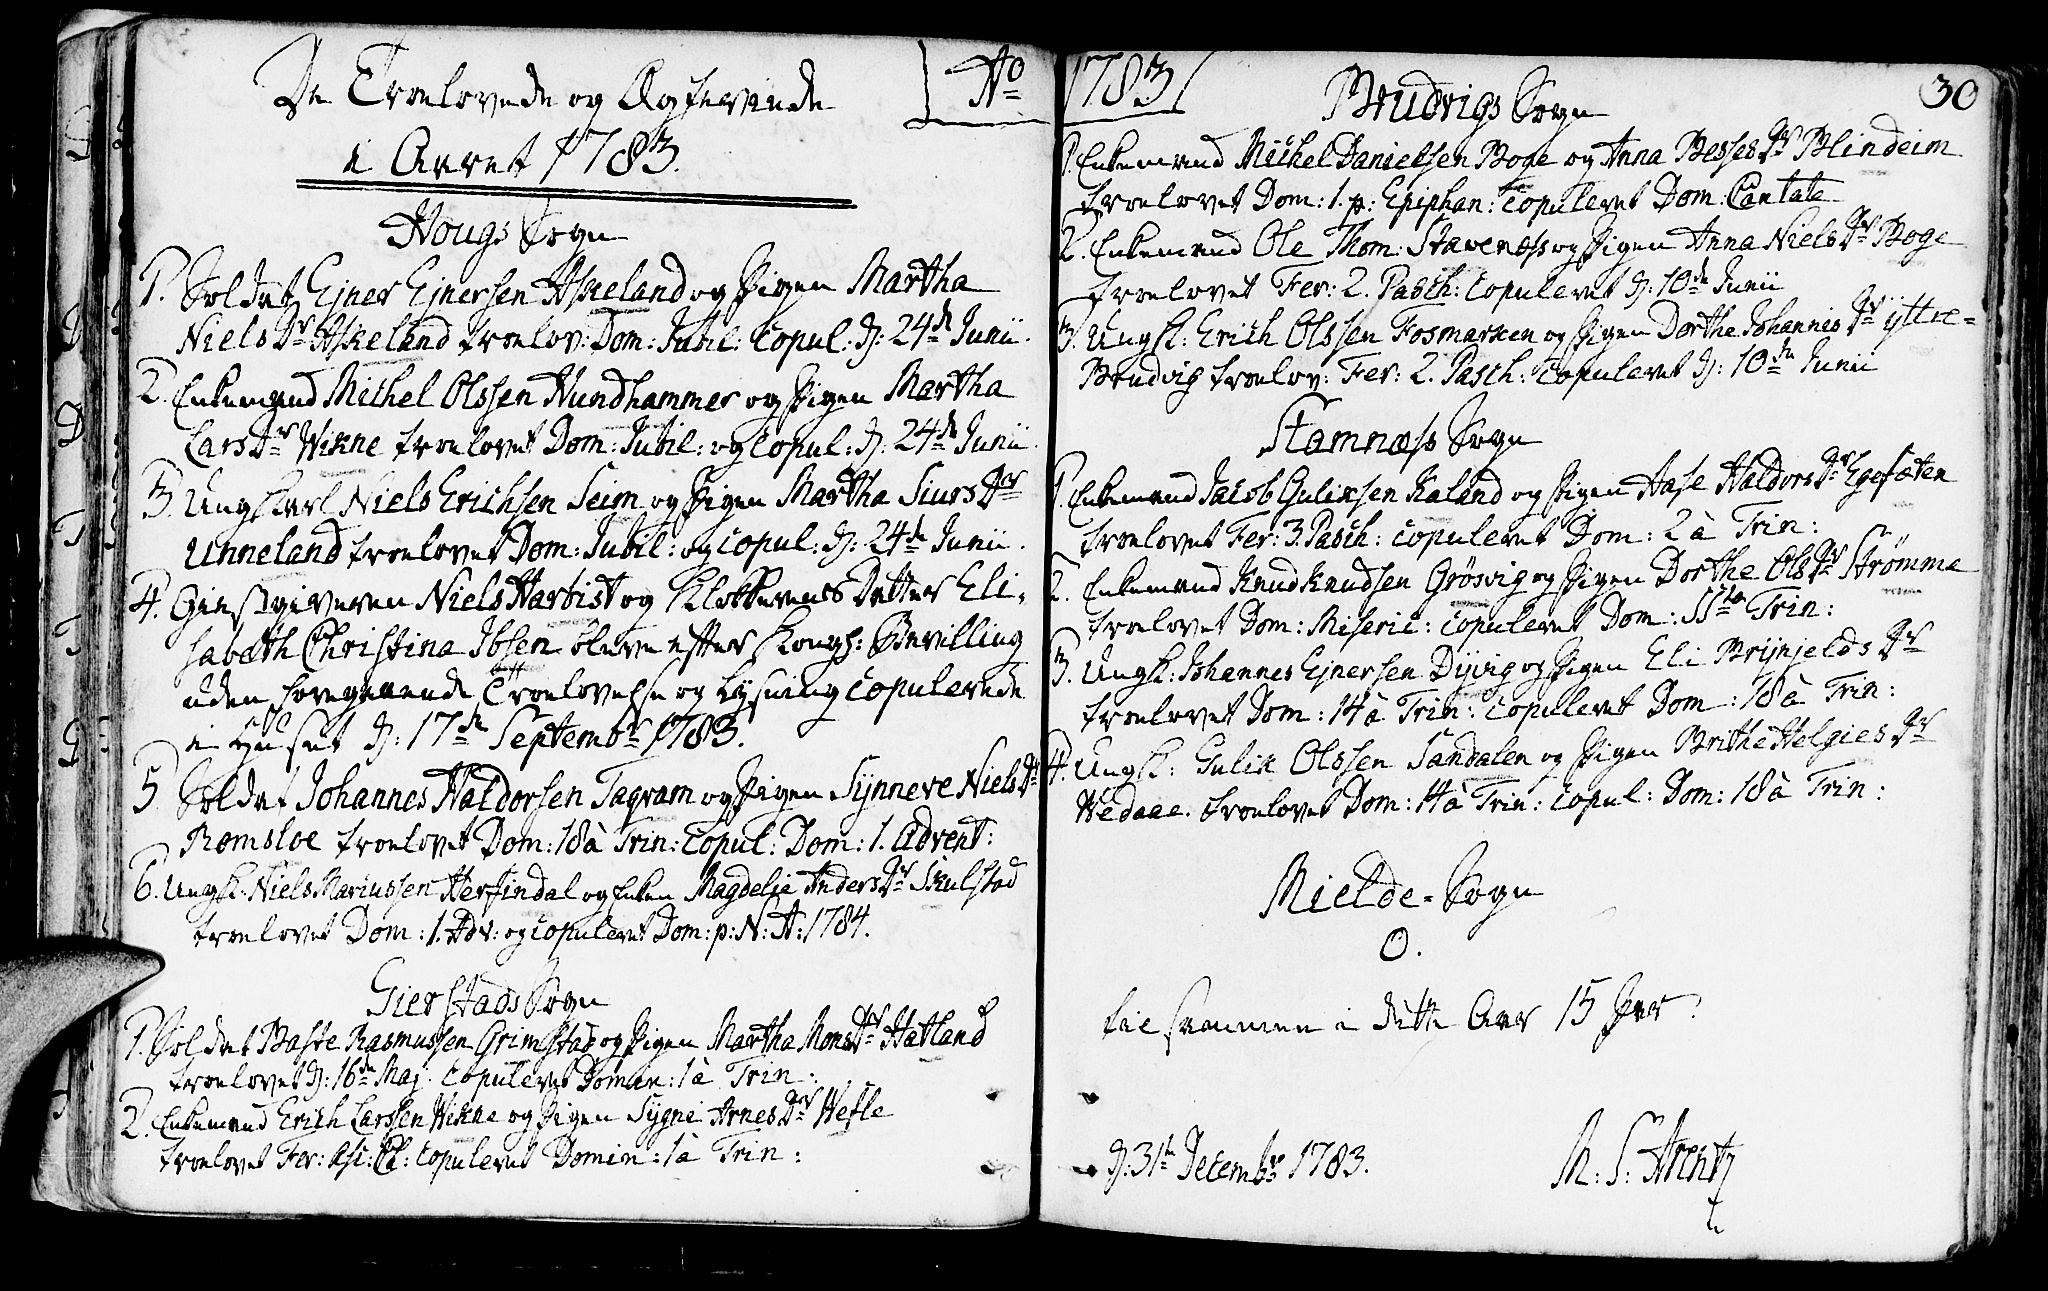 De Troelovede og Ægteviede
i Aaret 1783.
Hougs Sogn
1. Soldat Ejner Ejnersen Askeland og Pigen Martha
Niels Dr Askeland troelov: Dom: Jubil: Copul: d: 24de Junii.
2. Enkemand Michel Olssen Hundhammer og Pigen Martha
Lars Dr Wikne troelovet Dom: Jubil: og Copul: d: 24de Junii.
3. Ungkarl Niels Erichsen Seim og Pigen Martha Siurs Dr
Unneland troelovet Dom: Jubil: og copul: d: 24de Junii.
4. Giestgiveren Niels Harbist og Klokkerens Datter Eli-
sabeth Christina Ibsen bleve efter Kongl: Bevilling
uden foregaaende Troelovelse og Lysning copulerede
i Huset d: 17de Septembr 1783.
5 Soldat Johannes Haldorsen Taqvam og Pigen Synneve Niels Dr
Romsloe troelovet Dom: 18 à Trin: Copul: Dom: 1. Advent:
6. Ungk: Niels Mariussen Herfindal og Enken Magdelie Anders Dr Skulstad
troelovet Dom: 1. Adv: og copuleret Dom: p: N: A: 1784.
Gierstads Sogn
1. Soldat Baste Rasmussen Grimstad og Pigen Martha Mons Dr Hatland
troelovet d: 16de Maj. Copuleret Domin: 1 à Trin:
2. Enkemand Erich Larssen Wikne og Pigen Sygni Arnes Dr Wefle
troelovet Fer: Asc: Ch: copuleret Domin: 1 à Trin:
Ao 1783
30
Brudvigs Sogn
1. Enkemand Michel Danielsen Boge og Anna Besses Dr Blindeim
troelovet Dom: 1. p: Epiphan: copuleret Dom: Cantate
2. Enkemand Ole Thom: Stavenæs og Pigen Anna Niels Dr Boge
troelovet Fer: 2. Pasch: copuleret d: 10de Junii
3. Ungk: Erich Olssen Fosmarken og Pigen Dorthe Johannis Dr ÿttre-
Brudvig troelov: Fer: 2. Pasch: copuleret d: 10de Junii
Stamnæs Sogn
1. Enkemand Jacob Guliksen Kaland og Pigen Aase Haldors Dr Egesæten
troelovet Fer: 3. Pasch: copuleret Dom: 2 à Trin:
2. Enkemand Knud Knudsen Grösvig og Pigen Dorthe Ols Dr Strömme
troelovet Dom: Miseric: copuleret Dom: 11te Trin:
3. Ungk: Johannes Ejnersen Dÿvig og Pigen Eli Brÿnjelds Dr
troelovet Dom: 14 à Trin: copuleret Dom: 18 à Trin:
4. Ungk: Gulik Olssen Sandalen og Pigen Brithe Helgies Dr
Wedaae. troelovet Dom: 14 à Trin: copul: Dom: 18 à Trin:
Mielde-Sogn
0.
tilsammen i dette Aar 15 Par.
d: 31te Decembr 1783.
M: S: Arentz